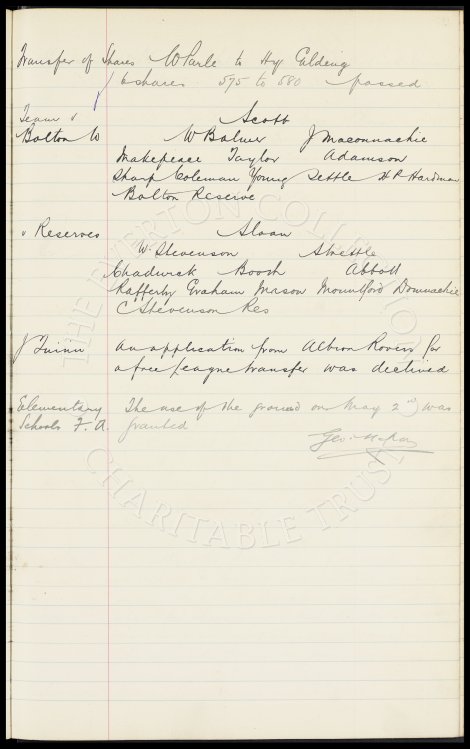 Transfer of Shares W Parle to Hy Calding
6 shares 575 to 580 passed
Team v Scott
Bolton W W Balmer J Maconnachie
Makepeace Taylor Adamson
Sharp Coleman Young Settle H P Hardman
Bolton Reserve
v Reserves Sloan
W. Stevenson Strettle
Chadwick Booth Abbott
Rafferty Graham Mason Mountford Donnachie
C Stevenson Res
J Quinn An application from Albion Rovers for
a free League transfer was declined
Elementary The use of the ground on May 2nd was
Schools F. A. granted
THE EVERTON COLLECTION
CHARITABLE TRUST